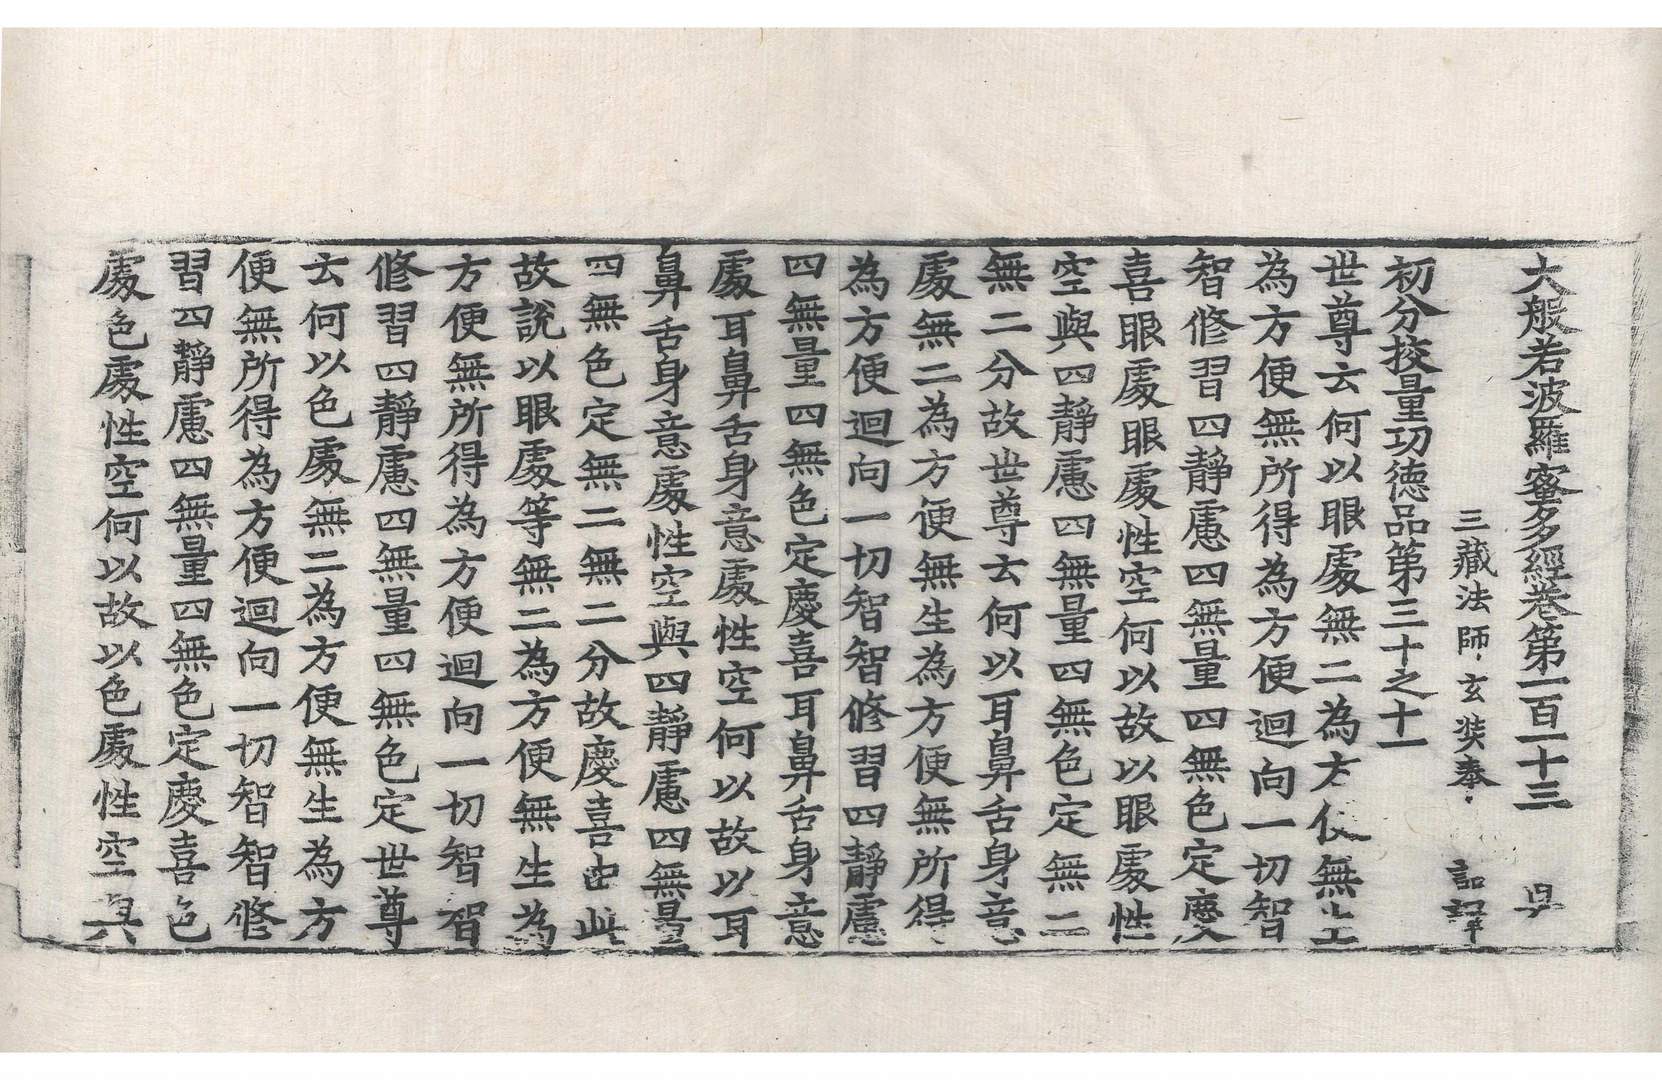 大般若波羅蜜多經卷第一百一十三 昃
三藏法師玄奘奉 詔譯
初分挍量功德品第三十之十一
世尊云何以眼處無二為方便無生
為方便無所得為方便迴向一切智
智修習四靜慮四無量四無色定慶
喜眼處眼處性空何以故以眼處性
空與四靜慮四無量四無色定無二
無二分故世尊云何以耳鼻舌身意
處無二為方便無生為方便無所得
為方便迴向一切智智修習四靜慮
四無量四無色定慶喜耳鼻舌身意
處耳鼻舌身意處性空何以故以耳
鼻舌身意處性空與四靜慮四無量
四無色定無二無二分故慶喜由此
故說以眼處等無二為方便無生為
方便無所得為方便迴向一切智智
修習四靜慮四無量四無色定世尊
云何以色處無二為方便無生為方
便無所得為方便迴向一切智智修
習四靜慮四無量四無色定慶喜色
處色處性空何以故以色處性空與